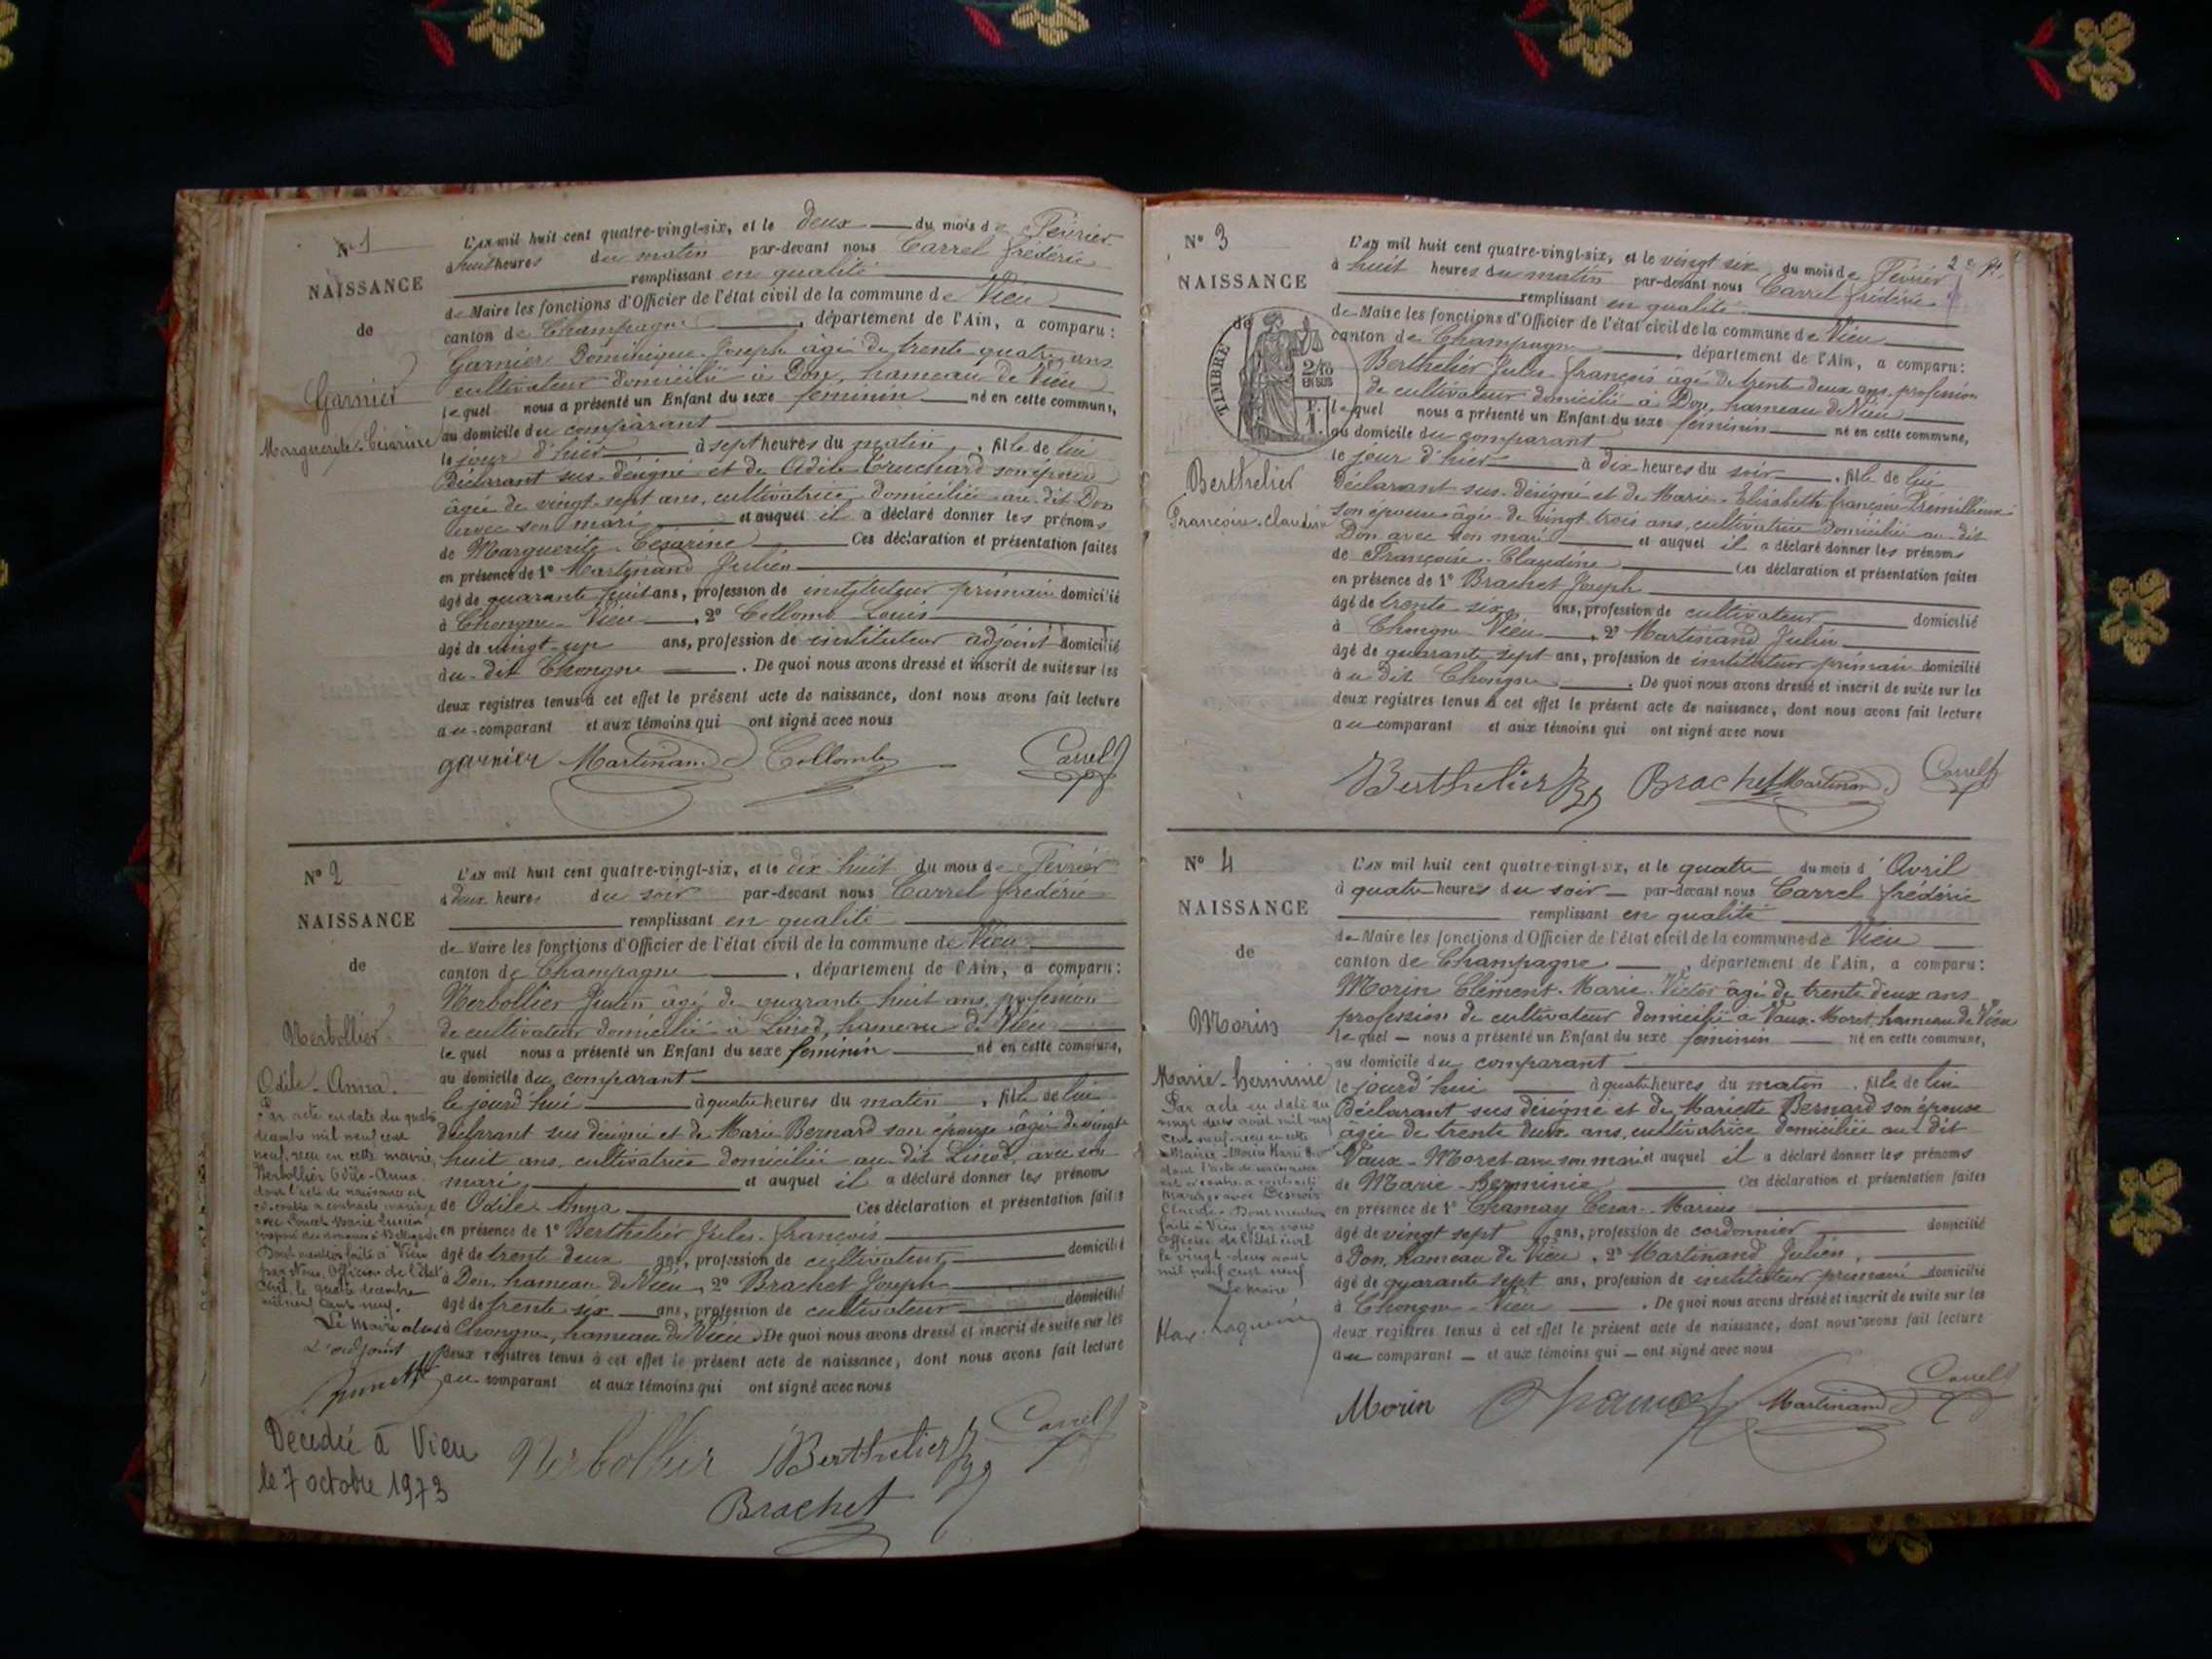 N° 1
NAISSANCE
de
Garnier
Marguerite-Césarine
L'An mil huit cent quatre-vingt-six, et le deux du mois de Février
à huit heures du matin par-devant nous Carrel frédéric
remplissant en qualité
de Maire les fonctions d'Officier de l'état civil de la commune de Vieu
canton de Champagne, département de l'Ain, a comparu:
Garnier Dominique Joseph âgé de trente quatre ans
cultivateur domicilié à Don, hameau de Vieu
lequel nous a présenté un Enfant du sexe féminin né en cette commune,
au domicile du comparant
le jour d'hier à sept heures du matin, fille de lui
Déclarant sus-désigné et de Adèle Cruchard son épouse
âgée de vingt-sept ans, cultivatrice domiciliée au dit Don
avec son mari et auquel il a déclaré donner les prénoms
de Marguerite-Césarine Ces déclaration et présentation faites
en présence de 1° Martinand Julien
âgé de quarante huit ans, profession de instituteur primaire domicilié
à Chongne-Vieu, 2° Collomb Louis
âgé de vingt-un ans, profession de instituteur adjoint domicilié
au-dit Chongne. De quoi nous avons dressé et inscrit de suite sur les
deux registres tenus à cet effet le présent acte de naissance, dont nous avons fait lecture
au comparant et aux témoins qui ont signé avec nous
garnier Martinand Collomb Carrel
N° 2
NAISSANCE
de
Nerbollier
Odile-Anna.
Par acte en date du quatre
décembre mil neuf cent
neuf, reçu en cette mairie,
Nerbollier Odile-Anna
dont l'acte de naissance est
ci-contre a contracté mariage
avec Poncet Marie Lucien
Dont mention faite à Vieu
par Nous, Officier de l'état
civil, le quatre décembre
mil neuf cent neuf.
Le Maire
L'adjoint
Décédée à Vieu
le 7 octobre 1973
L'An mil huit cent quatre-vingt-six, et le dix huit du mois de Février
à deux heures du soir par-devant nous Carrel frédéric
remplissant en qualité
de Maire les fonctions d'Officier de l'état civil de la commune de Vieu
canton de Champagne, département de l'Ain, a comparu:
Nerbollier Justin âgé de quarante huit ans, profession
de cultivateur domicilié à Linod, hameau de Vieu
lequel nous a présenté un Enfant du sexe féminin né en cette commune,
au domicile du comparant
le jourd'hui à quatre heures du matin, fille de lui
déclarant sus désigné et de Marie Bernard son épouse âgée de vingt
huit ans, cultivatrice domiciliée au-dit Linod, avec son
mari, et auquel il a déclaré donner les prénoms
de Odile-Anna Ces déclaration et présentation faites
en présence de 1° Berthelier Jules-françois
âgé de trente deux ans, profession de cultivateur domicilié
à Don, hameau de Vieu, 2° Brachet Joseph
âgé de trente six ans, profession de cultivateur domicilié
à Chongne, hameau de Vieu. De quoi nous avons dressé et inscrit de suite sur les
deux registres tenus à cet effet le présent acte de naissance, dont nous avons fait lecture
au comparant et aux témoins qui ont signé avec nous
Nerbollier Berthelier Carrel
Brachet
N° 3
NAISSANCE
de
TIMBRE
2/10
EN SUS
Berthelier
Françoise-Claudine
2e
L'An mil huit cent quatre-vingt-six, et le vingt six du mois de Février
à huit heures du matin par-devant nous Carrel frédéric
remplissant en qualité
de Maire les fonctions d'Officier de l'état civil de la commune de Vieu
canton de Champagne, département de l'Ain, a comparu:
Berthelier Jules-françois âgé de trente deux ans, profession
de cultivateur domicilié à Don, hameau de Vieu
lequel nous a présenté un Enfant du sexe féminin né en cette commune,
au domicile du comparant
le jour d'hier à dix heures du soir, fille de lui
Déclarant sus-désigné et de Marie-Elisabeth françoise Prémillieux
son épouse âgée de vingt trois ans, cultivatrice domiciliée au-dit
Don avec son mari et auquel il a déclaré donner les prénoms
de Françoise-Claudine Ces déclaration et présentation faites
en présence de 1° Brachet Joseph
âgé de trente six ans, profession de cultivateur domicilié
à Chongne-Vieu, 2° Martinand Julien
âgé de quarante sept ans, profession de instituteur primaire domicilié
au dit Chongne. De quoi nous avons dressé et inscrit de suite sur les
deux registres tenus à cet effet le présent acte de naissance, dont nous avons fait lecture
au comparant et aux témoins qui ont signé avec nous
Berthelier Brachet Martinand Carrel
N° 4
NAISSANCE
de
Morin
Marie-herminie
Par acte en date du
vingt deux août mil neuf
cent neuf reçu en cette
Mairie
Claude. Dont mention
faite à Vieu par nous
officier de l'état civil
le vingt-deux août
mil neuf cent neuf
Le maire,
L'An mil huit cent quatre-vingt-six, et le quatre du mois d'Avril
à quatre heures du soir par-devant nous Carrel frédéric
remplissant en qualité
de Maire les fonctions d'Officier de l'état civil de la commune de Vieu
canton de Champagne, département de l'Ain, a comparu:
Morin Clément-Marie-Victor âgé de trente deux ans
profession de cultivateur domicilié à Vaux-Moret, hameau de Vieu
lequel nous a présenté un Enfant du sexe féminin né en cette commune,
au domicile du comparant
le jourd'hui à quatre heures du matin, fille de lui
Déclarant sus désigné et de Mariette Bernard son épouse
âgée de trente deux ans, cultivatrice domiciliée au-dit
Vaux-Moret avec son mari et auquel il a déclaré donner les prénoms
de Marie-herminie Ces déclaration et présentation faites
en présence de 1° Chamay César-Marius
âgé de vingt sept ans, profession de cordonnier domicilié
à Don, hameau de Vieu, 2° Martinand Julien,
âgé de quarante sept ans, profession de instituteur primaire domicilié
à Chongne-Vieu. De quoi nous avons dressé et inscrit de suite sur les
deux registres tenus à cet effet le présent acte de naissance, dont nous avons fait lecture
au comparant et aux témoins qui ont signé avec nous
Morin Chamay Martinand Carrel